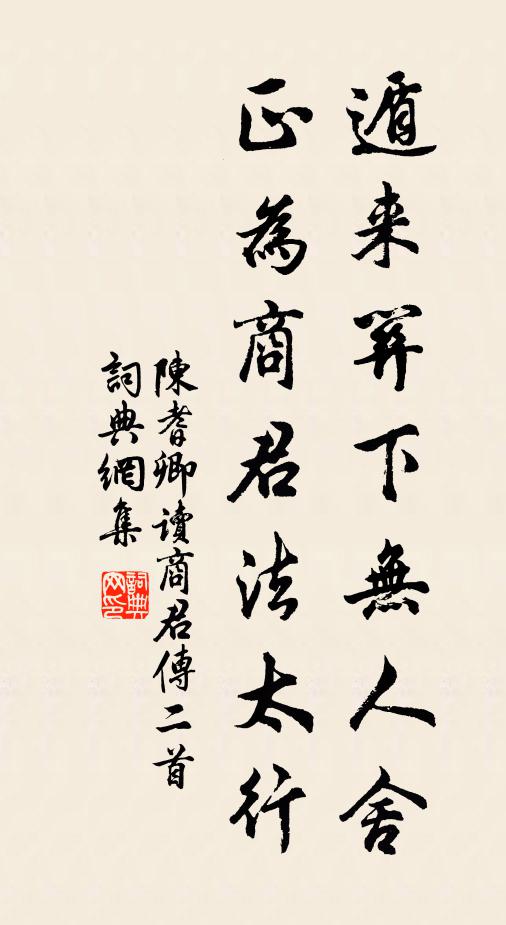 遁来關下無人舍
正為商君法太行
陳耆卿讀商君傳二首
詞典網集
詞典网印